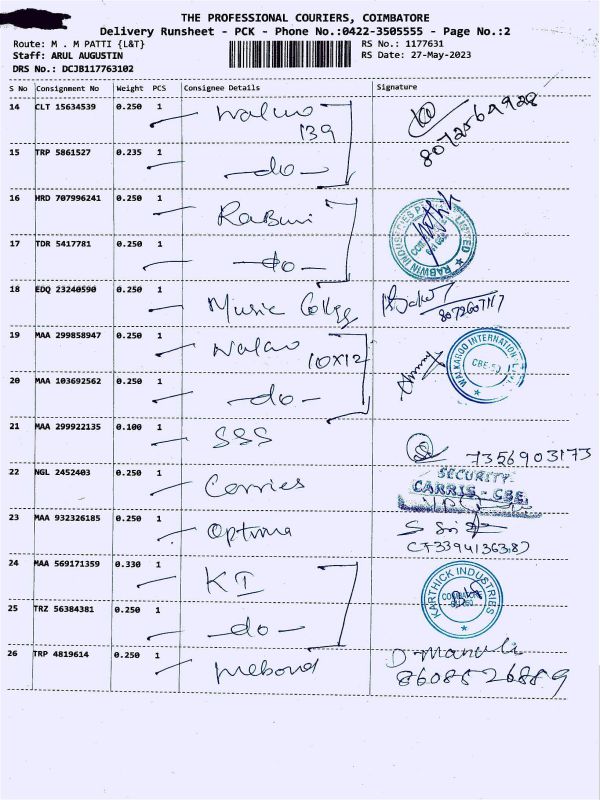 THE PROFESSIONAL COURIERS, COIMBATORE
Delivery Runsheet - PCK - Phone No.:0422-3505555 - Page No.:2
Route: M . M PATTI {L&T}
RS No.: 1177631
Staff: ARUL AUGUSTIN
RS Date: 27-May-2023
DRS No.: DCJB117763102
S No Consignment No Weight PCS Consignee Details Signature
14 CLT 15634539 0.250 1
139
8072569928
15 TRP 5861527 0.235 1 -do-
16 HRD 707996241 0.250 1
RABWIN INDUSTRIES
LIMITED
17 TDR 5417781 0.250 1 -do-
18 EDQ 23240590 0.250 1 Music College
8072607117
19 MAA 299858947 0.250 1
10x12
WALKAROO INTERNATION
20 MAA 103692562 0.250 1 -do-
21 MAA 299922135 0.100 1 SSS
7356903173
22 NGL 2452403 0.250 1 Carries
SECURITY
CARRIS - CBE.
23 MAA 932326185 0.250 1 Optima
24 MAA 569171359 0.330 1 KI
KARTHICK INDUSTRIES
25 TRZ 56384381 0.250 1 -do-
26 TRP 4819614 0.250 1
8608526889